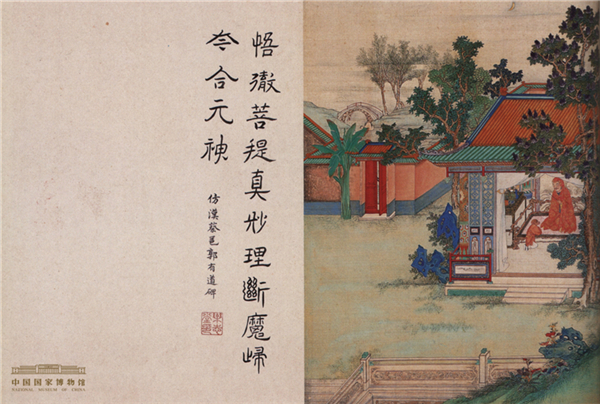 悟徹菩提真妙理斷魔歸
夲合元神
仿漢蔡邕郭有道碑
中国国家博物馆
NATIONAL MUSEUM OF CHINA